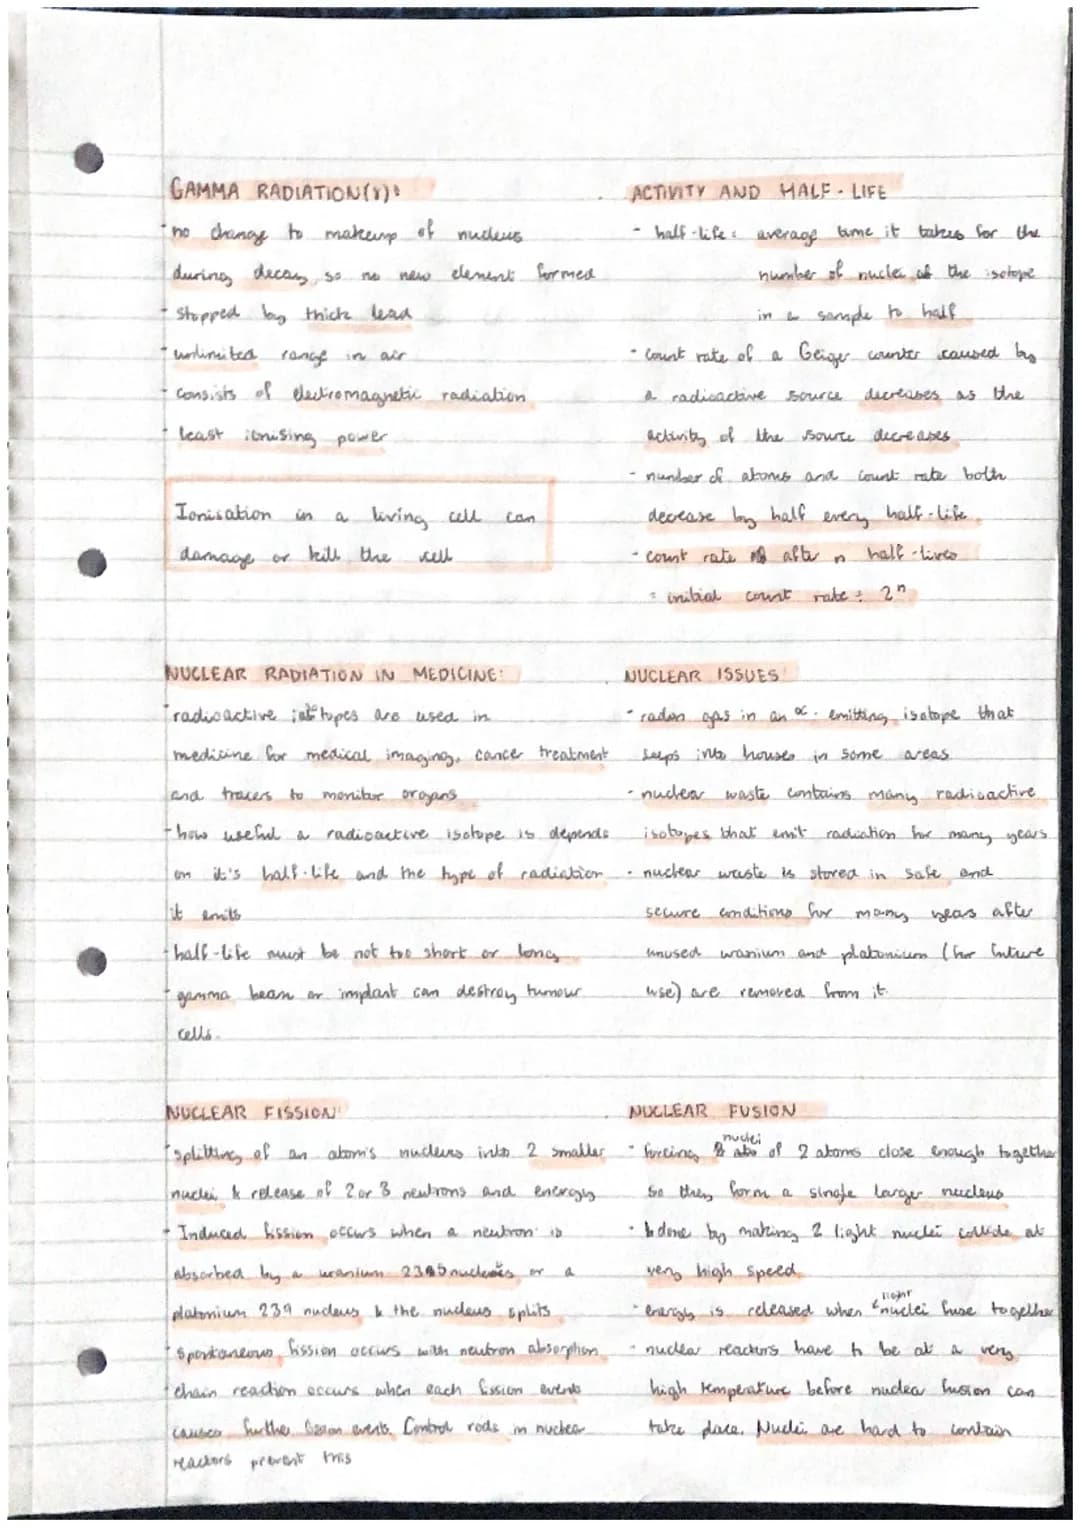 GAMMA RADIATION(γ):
- no change to makeup of nucleus
during decay, so no new element formed
- stopped by thick lead
- unlimited range in air
- consists of electromagnetic radiation
- least ionising power
Ionisation in a living cell can
damage or kill the cell
ACTIVITY AND HALF-LIFE
- half-life: average time it takes for the
number of nuclei of the isotope
in a sample to half
- count rate of a Geiger counter caused by
a radioactive source decreases as the
activity of the source decreases
- number of atoms and count rate both
decrease by half every half-life
- count rate after n half-lives
= initial count rate ÷ 2ⁿ
NUCLEAR RADIATION IN MEDICINE:
- radioactive isotopes are used in
medicine for medical imaging, cancer treatment
and tracers to monitor organs
- how useful a radioactive isotope is depends
on it's half-life and the type of radiation
it emits
- half-life must be not too short or long
- gamma beam or implant can destroy tumour
cells.
NUCLEAR ISSUES:
- radon gas in an α-emitting isotope that
seeps into houses in some areas
- nuclear waste contains many radioactive
isotopes that emit radiation for many years
- nuclear waste is stored in safe and
secure conditions for many years after
unused uranium and platonium (for future
use) are removed from it.
NUCLEAR FISSION:
- splitting of an atom's nucleus into 2 smaller
nuclei & release of 2 or 3 neutrons and energy
- Induced fission occurs when a neutron is
absorbed by a uranium 235 nucleus or a
platonium 239 nucleus & the nucleus splits
- spontaneous fission occurs with neutron absorption
- chain reaction occurs when each fission event
causes further fission events. Control rods in nuclear
reactors prevent this
NUCLEAR FUSION
- forcing nuclei of 2 atoms close enough together
so they form a single larger nucleus
- done by making 2 light nuclei collide at
very high speed
- energy is released when 2 light nuclei fuse together
- nuclear reactors have to be at a very
high temperature before nuclear fusion can
take place. Nuclei are hard to contain